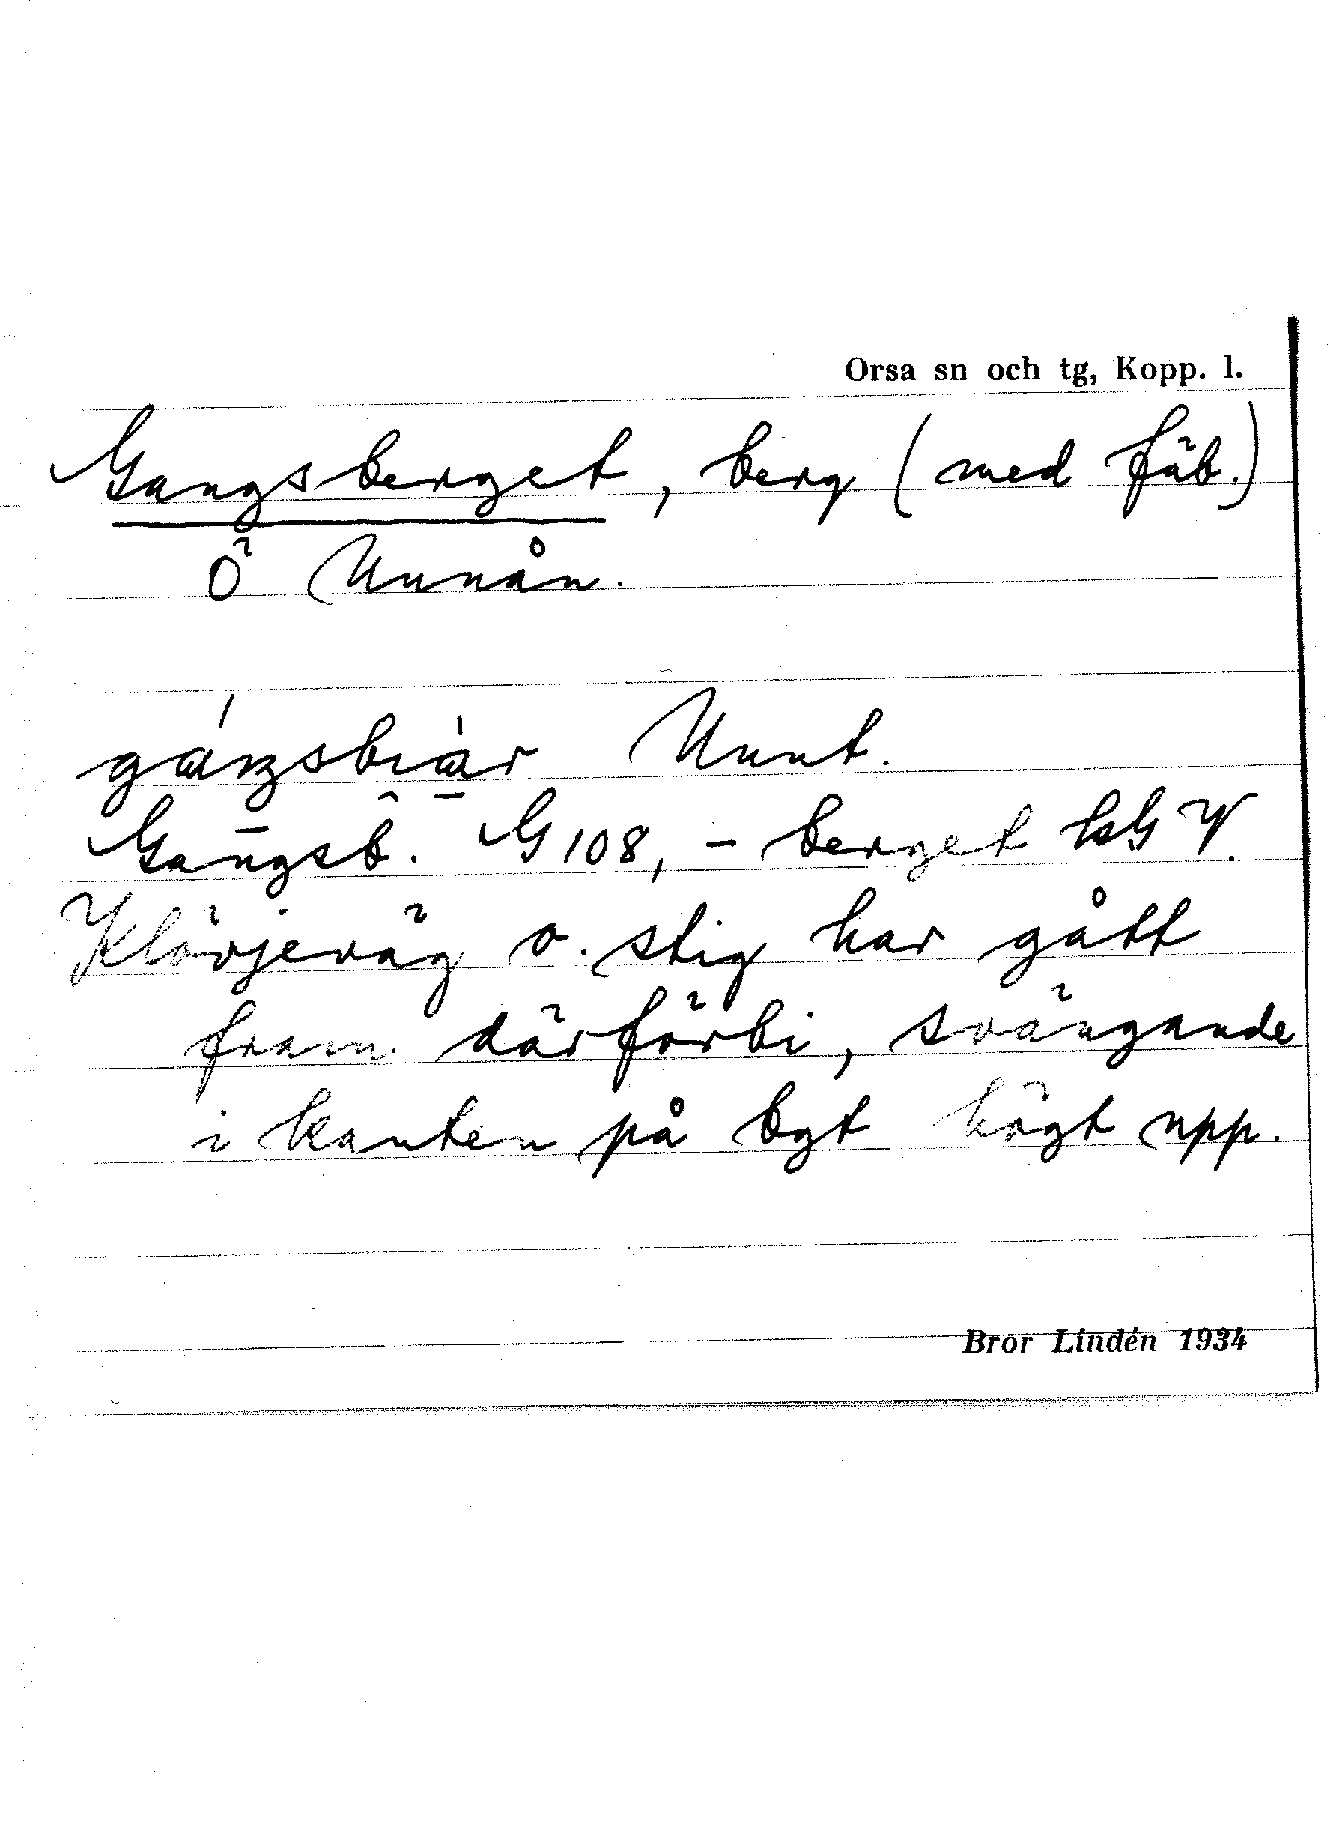 Orsa sn och tg, Kopp. l.
Gangsberget, berg (med fäb.)
Ö Unnån.
gáŋsbiàr Unnt.
Gangsb. G 108, - berget hG V.
Klövjeväg o. stig har gått
fram därförbi, svängande
i kanten på bgt högt upp.
Bror Lindén 1934